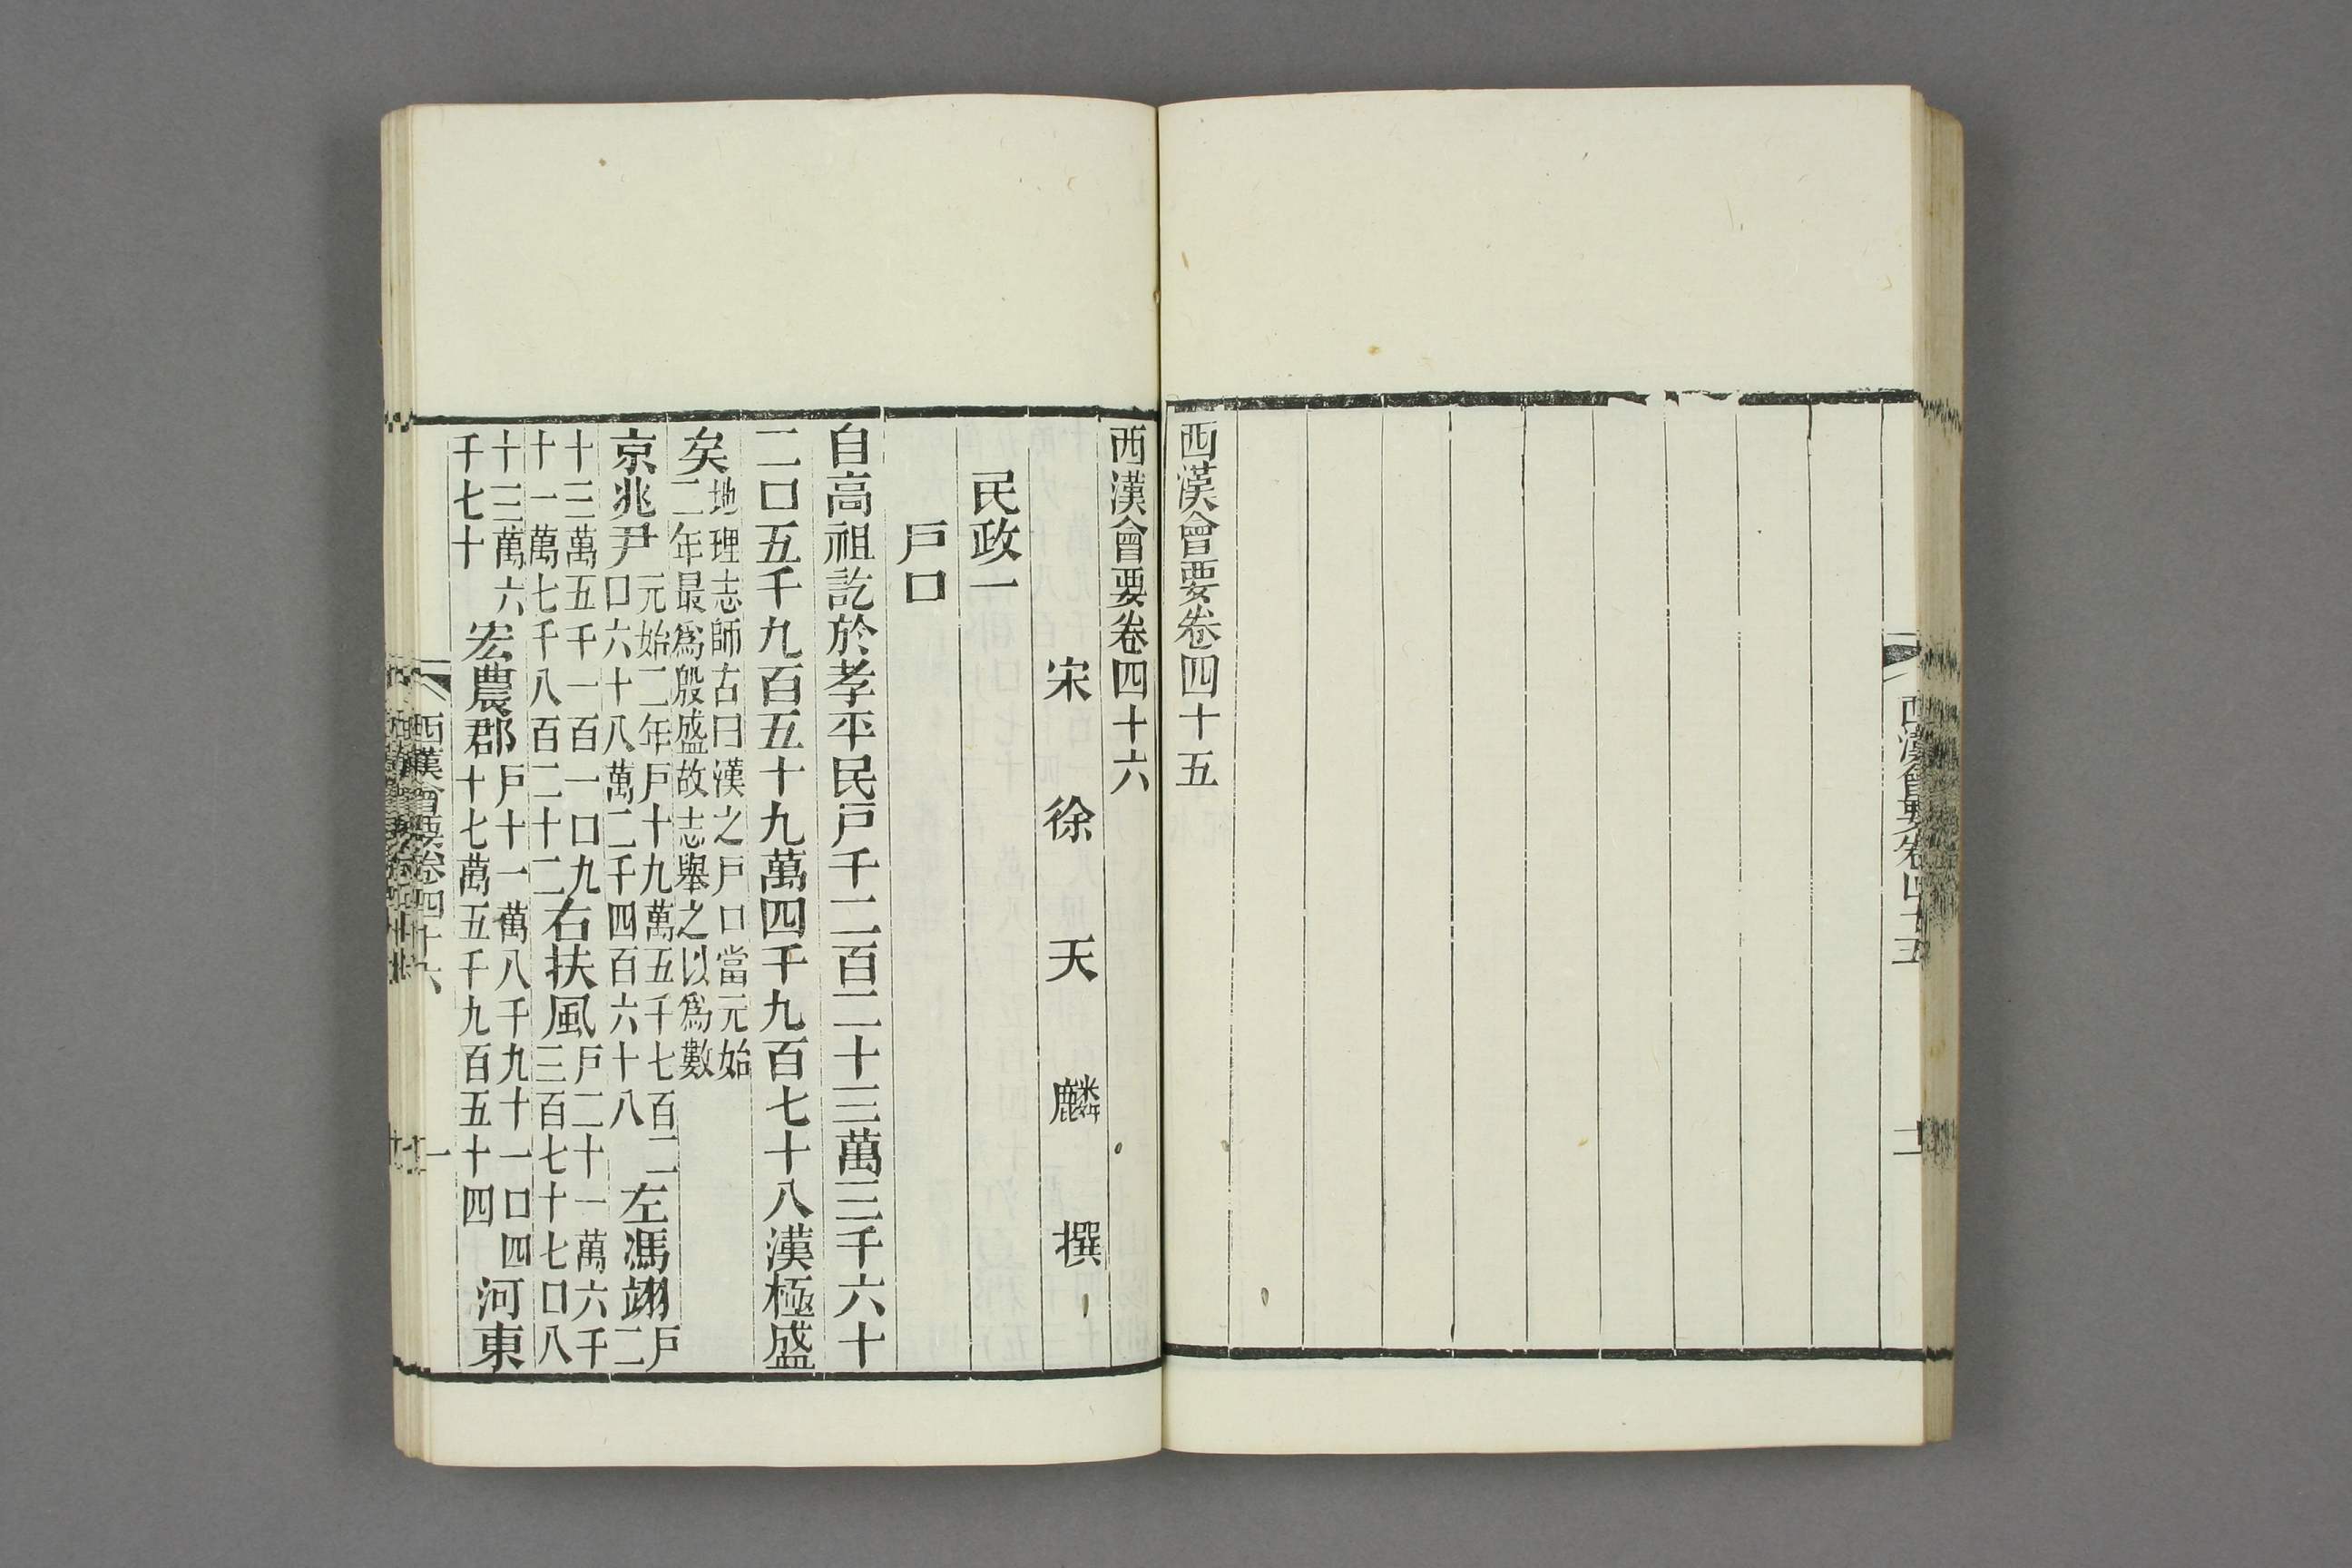 西漢會要卷四十五
西漢會要卷四十五
西漢會要卷四十六
宋徐天麟撰
民政一
戶口
自高祖訖於孝平民戶千二百二十三萬三千六十
二口五千九百五十九萬四千九百七十八漢極盛
矣地理志師古曰漢之戶口當元始二年最爲殷盛故志舉之以爲數
京兆尹元始二年戶十九萬五千七百二口六十八萬二千四百六十八左馮翊戶二
十三萬五千一百一口九十一萬七千八百二十二右扶風戶二十一萬六千三百七十七口八
十三萬六千七十宏農郡戶十一萬八千九十一口四十七萬五千九百五十四河東
西漢會要卷四十六 一